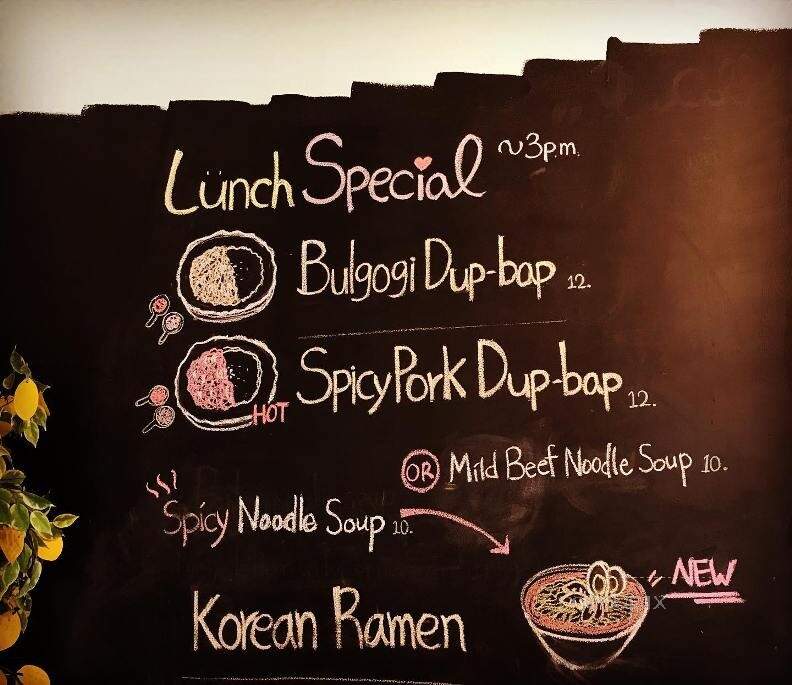 Lünch Special ~3p.m.
Bulgogi Dup-bap 12.
Spicy Pork Dup-bap 12.
HOT
OR Mild Beef Noodle Soup 10.
Spicy Noodle Soup 10.
NEW
Korean Ramen